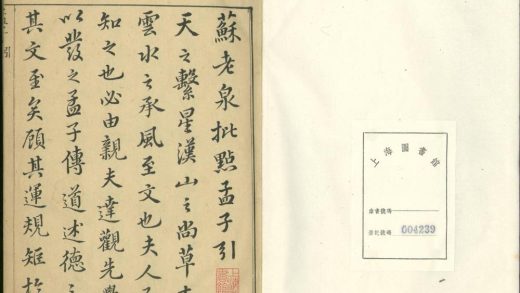 蘇老泉批點孟子引
天之繫星漢山之尚草木
雲水之承風至文也夫人
知之也必由親夫達觀先覺
以發之孟子傳道述德之
其文至矣顧其運規矩於
上海圖書館
索書號碼
登記號碼 004239